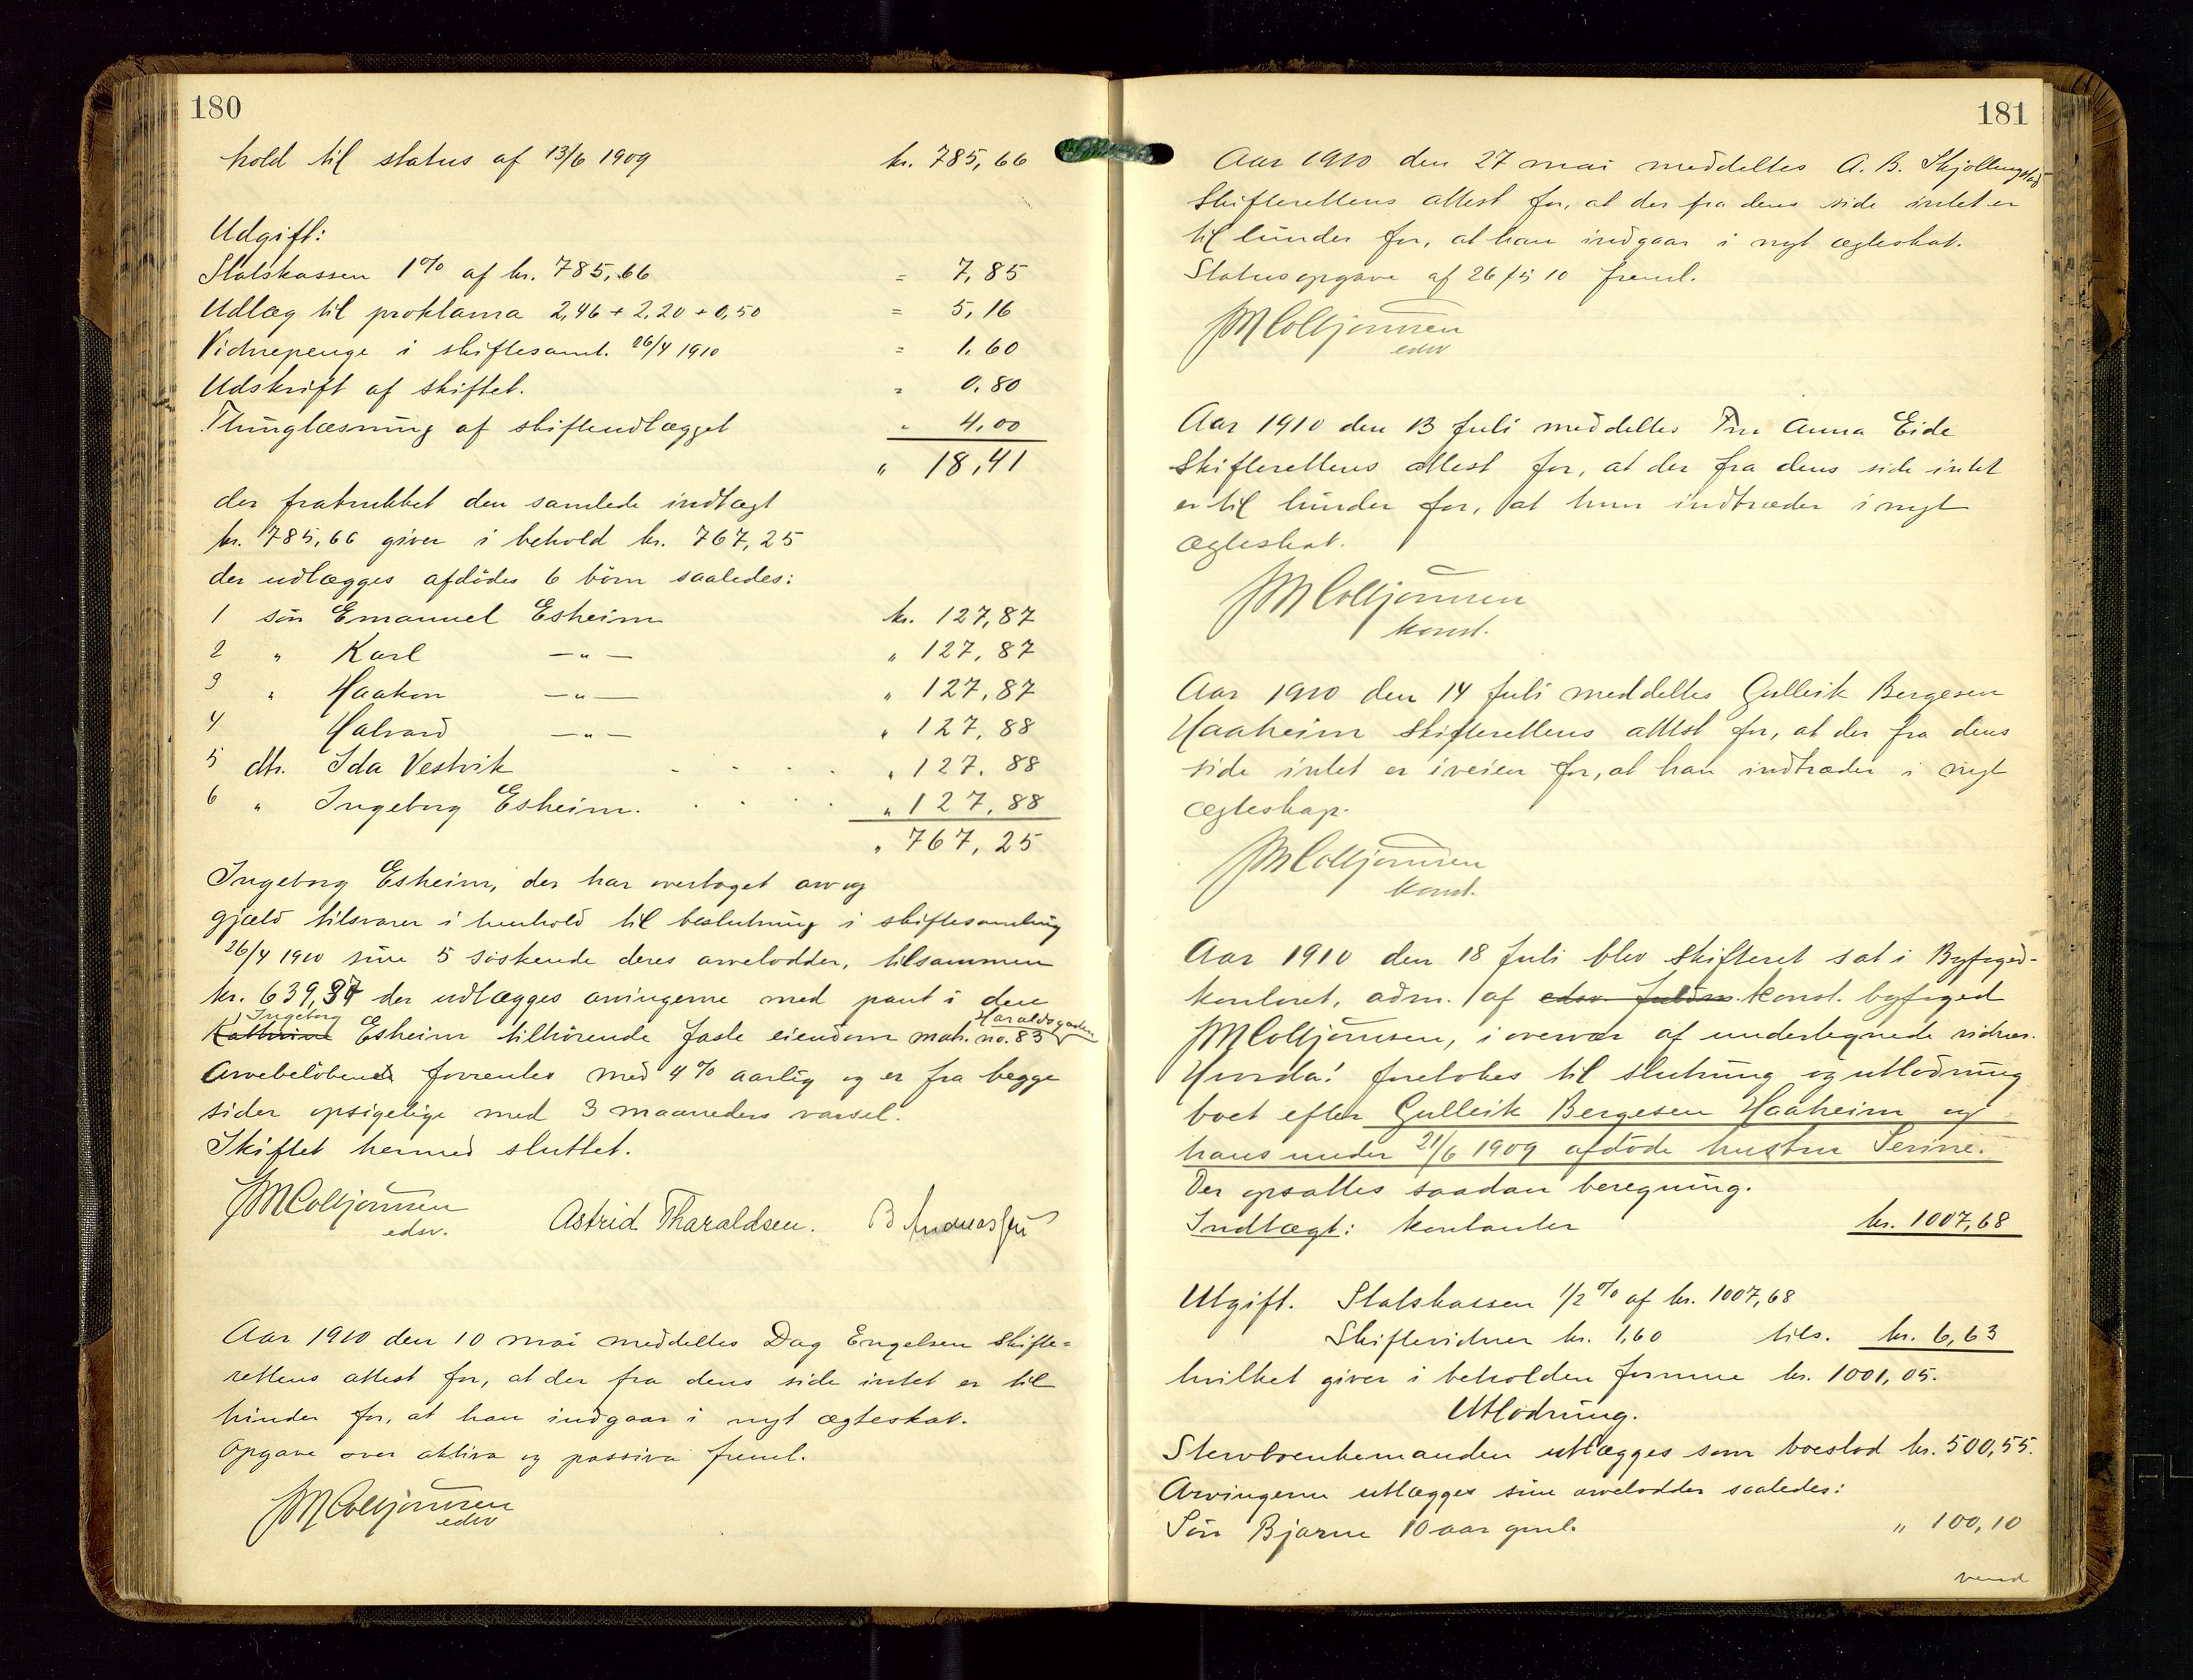 180
hold til status af 13/6 1909 kr. 785,66
Udgift:
Statskassen 1% af kr. 785,66 = 7,85
Udlæg til proklama 2,46 + 2,20 + 0,50 = 5,16
Vidnepenge i skiftesaml. 26/4 1910 = 1.60
Udskrift af skiftet. " 0.80
Thinglæsning af skifteudlægget " 4,00
" 18,41
der fratrukket den samlede indtægt
kr. 785,66 giver i behold kr. 767,25
der udlægges afdødes 6 børn saaledes:
1 søn Emanuel Esheim kr. 127,87
2 " Karl —"— " 127,87
3 " Haakon —"— " 127,87
4 Halvard —"— " 127,88
5 dtr. Ida Vestvik . . . . " 127.88
6 " Ingeborg Esheim. . . . . " 127,88
" 767,25
Ingeborg Esheim, der har overtaget arv og
gjæld tilsvarer i henhold til beslutning i skiftesamling
26/4 1910 sine 5 søskende deres arvelodder, tilsammen
kr. 639,37 der udlægges arvingerne med pant i den
Ingeborg Haraldsgaden
Kathrine Esheim tilhørende faste eiendom matr. no. 83
Arvebeløbene forrentes med 4% aarlig og er fra begge
sider opsigelige med 3 maaneders varsel.
Skiftet hermed sluttet.
JMColbjørnsen Astrid Tharaldsen. B Andreassen
edsv.
Aar 1910 den 10 mai meddeltes Dag Engelsen skifte-
rettens attest for, at der fra dens side intet er til
hinder for, at han indgaar i nyt ægteskab.
Opgave over aktiva og passiva freml.
JMColbjørnsen
edsv
181
Aar 1910 den 27 mai meddeltes A. B. Skjollingstad
Skifterettens attest for, at der fra dens side intet er
til hinder for, at han indgaar i nyt ægteskab.
Statusopgave af 26/5 10 freml.
JMColbjørnsen
edsv
Aar 1910 den 13 Juli meddeltes Fru Anna Eide
Skifterettens attest for, at der fra dens side intet
er til hinder for, at hun indtræder i nyt
ægteskab.
JMColbjørnsen
konst.
Aar 1910 den 14 Juli meddeltes Gulleik Bergesen
Haaheim Skifterettens attest for, at der fra dens
side intet er iveien for, at han indtræder i nyt
ægteskap.
JMColbjørnsen
konst.
Aar 1910 den 18 Juli blev skifteret sat i Byfoged-
kontoret, adm. af edsv. fuldm. konst. byfoged
JMColbjørnsen, i overvær af undertegnede vidner.
Hvorda! foretokes til slutning og utlodning
boet efter Gulleik Bergesen Haaheim og
hans under 21/6 1909 afdøde hustru Serine.
Der opsattes saadan beregning.
Indtægt: kontanter kr. 1007,68
Utgift. Statskassen 1/2% af kr. 1007,68
Skiftevidner kr. 1,60 tils. kr. 6,63
hvilket giver i beholden formue kr. 1001,05.
Utlodning.
Stervboenkemanden utlægges som boeslod kr. 500,55.
Arvingerne utlægges sine arvelodder saaledes:
Søn Bjarne 10 aar gml. " 100,10
vend